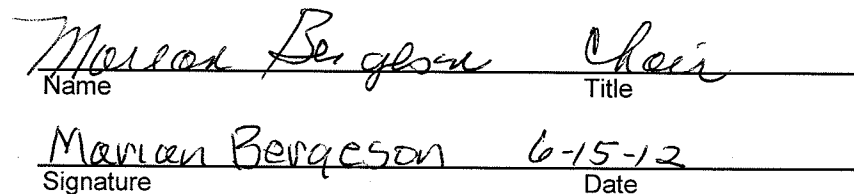 Marian Bergeson Chair
Name Title
Marian Bergeson 6-15-12
Signature Date